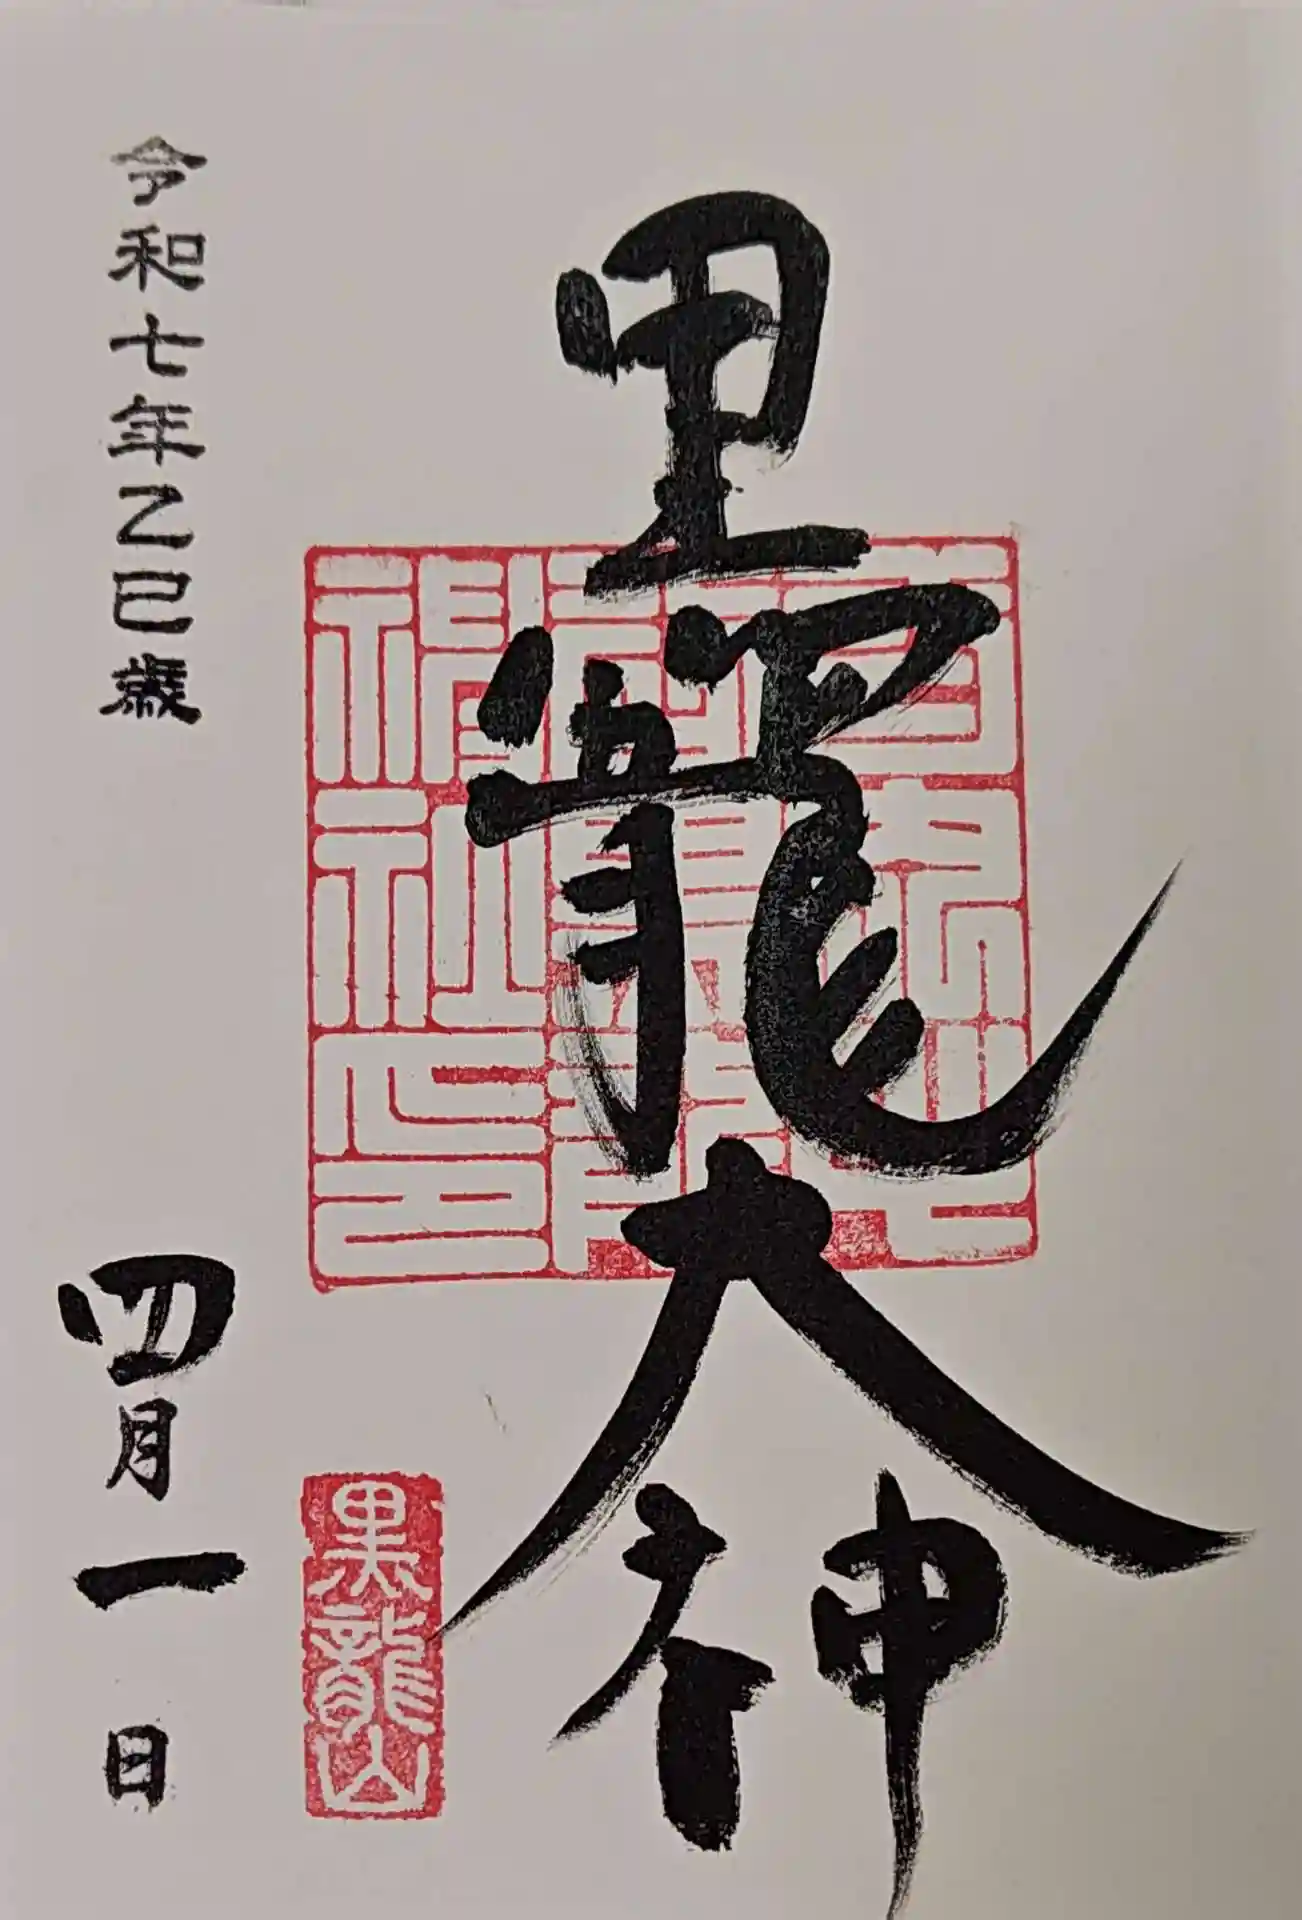 黒龍大神
黒龍山
令和七年乙巳歳
四月一日